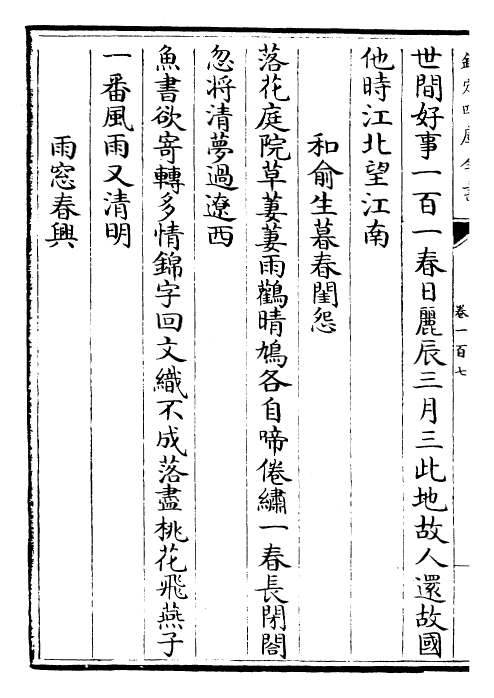 欽定四庫全書
卷一百七
世間好事一百一春日麗辰三月三此地故人還故國
他時江北望江南
和俞生暮春閨怨
落花庭院草萋萋雨鸛晴鳩各自啼倦繡一春長閉閤
忽將清夢過遼西
魚書欲寄轉多情錦字回文織不成落盡桃花飛燕子
一番風雨又清明
雨窓春興